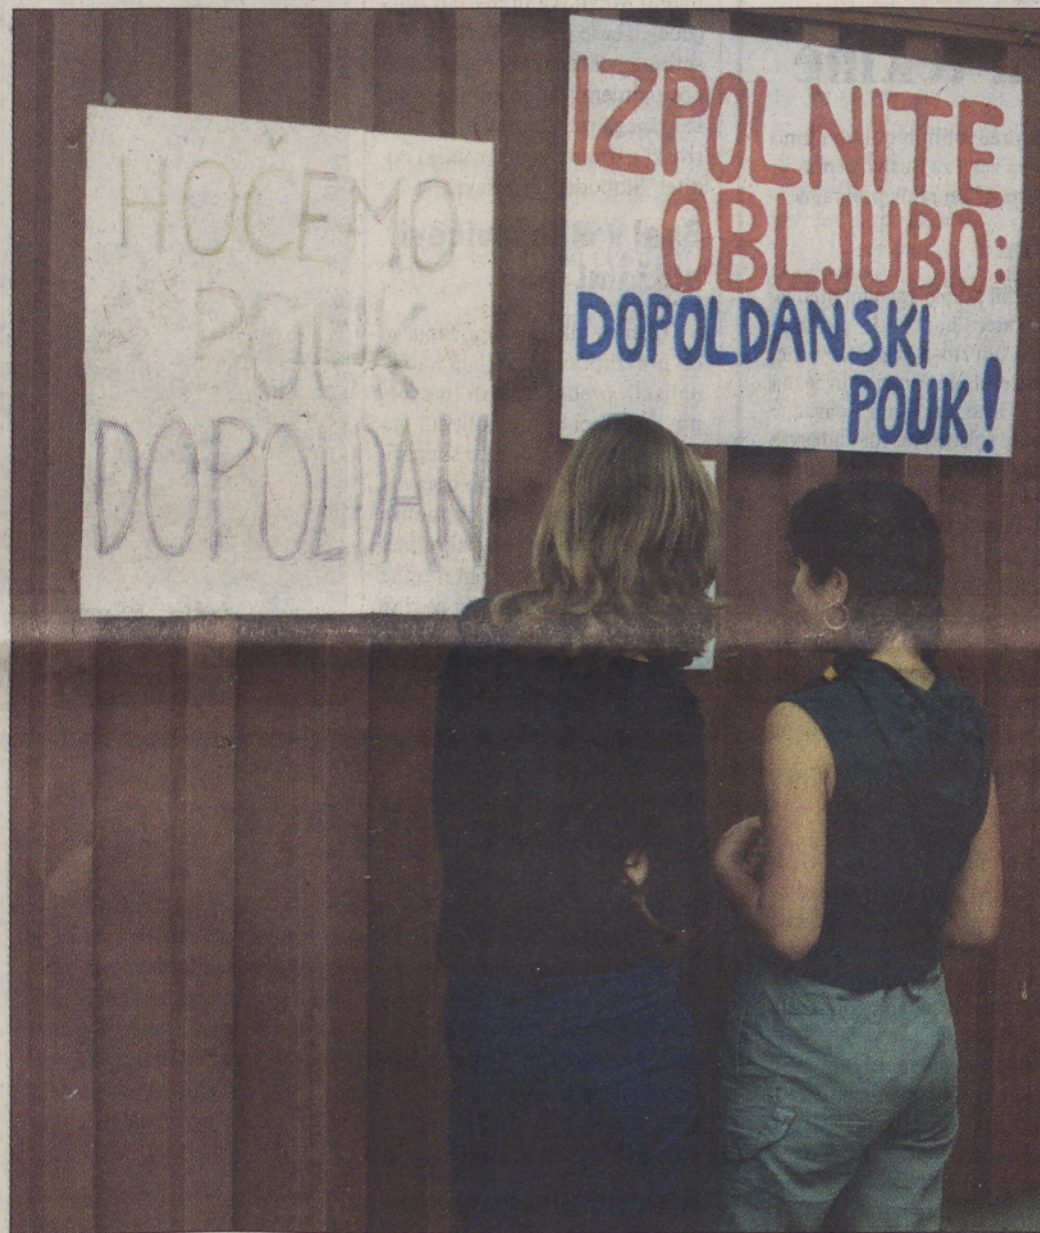 HOČEMO
POUK
DOPOLDAN
IZPOLNITE
OBLJUBO:
DOPOLDANSKI
POUK!